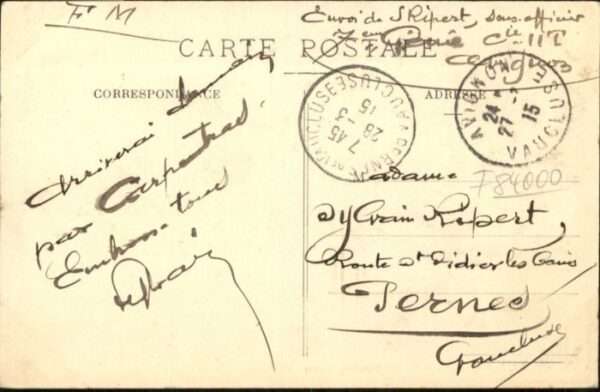 F M
Envoi de S Ripert, sous-officier
7e Génie Cie 11T
Avignon
CARTE POSTALE
CORRESPONDANCE
ADRESSE
Arriverai demain
par Carpentras.
Embrasse tous
PERNES VAUCLUSE
7 45
28 -3
15
AVIGNON VAUCLUSE
24
27 -3
15
F 84000
Madame
Sylvain Ripert,
Route St Didier les Bains
Pernes
Vaucluse